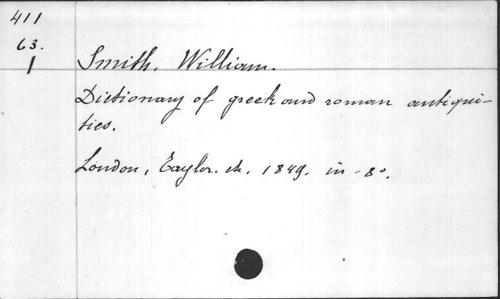 411
63.
1
Smith, William.
Dictionary of greek and roman antiqui-
ties.
London, Taylor. etc. 1849. in-8°.